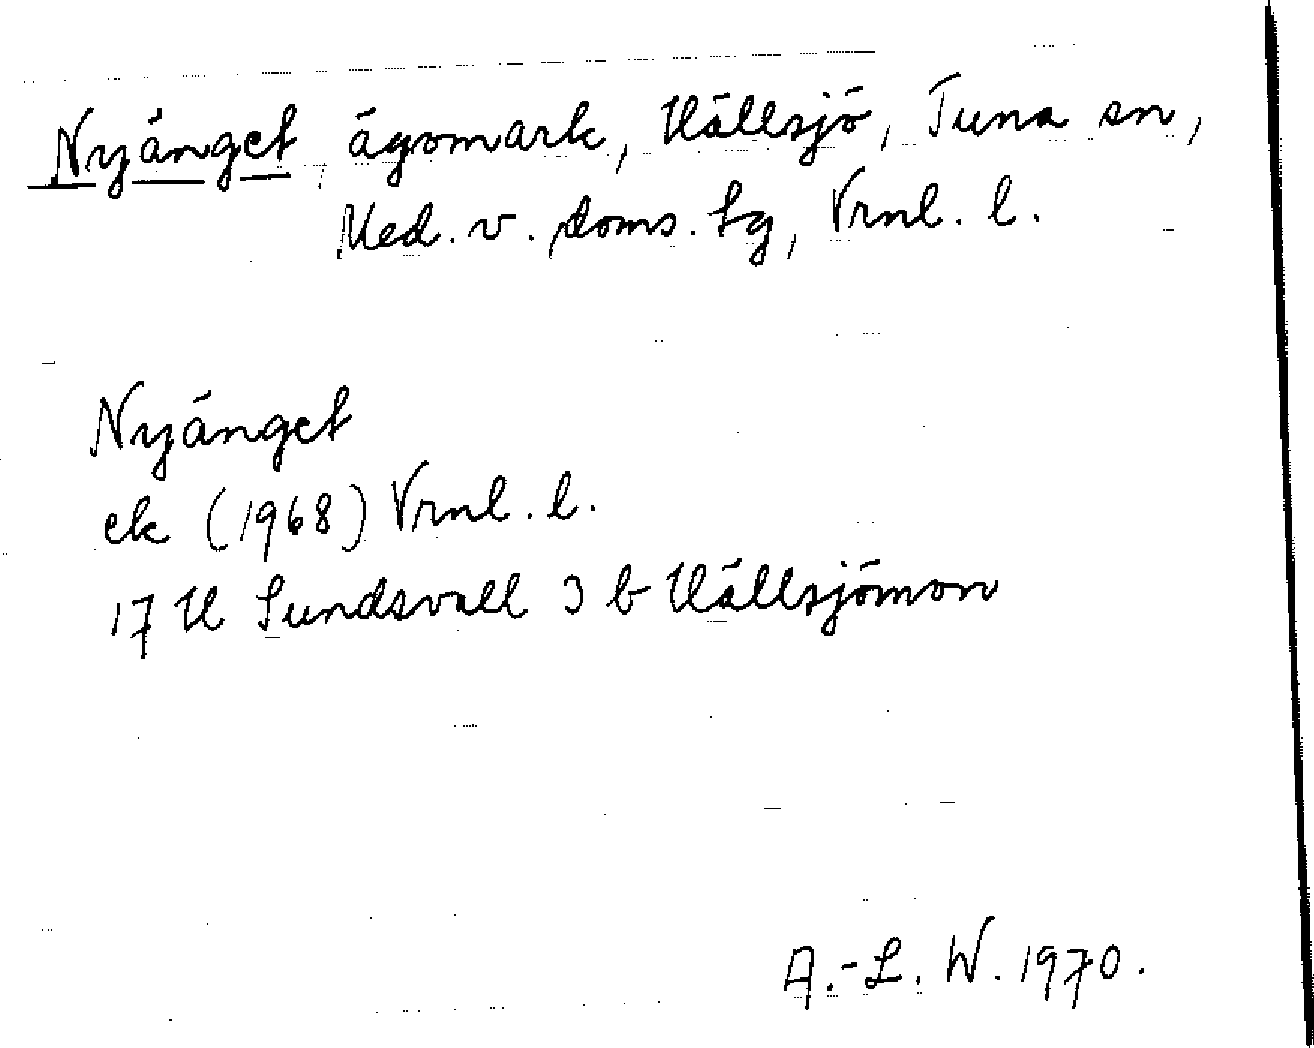 Nyänget, ägomark, Hällsjö, Tuna sn,
Med. v. doms. tg, Vrnl. l.
Nyänget
ek (1968) Vrnl. l.
17 H Sundsvall 3 b Hällsjömon
A.-L. W. 1970.